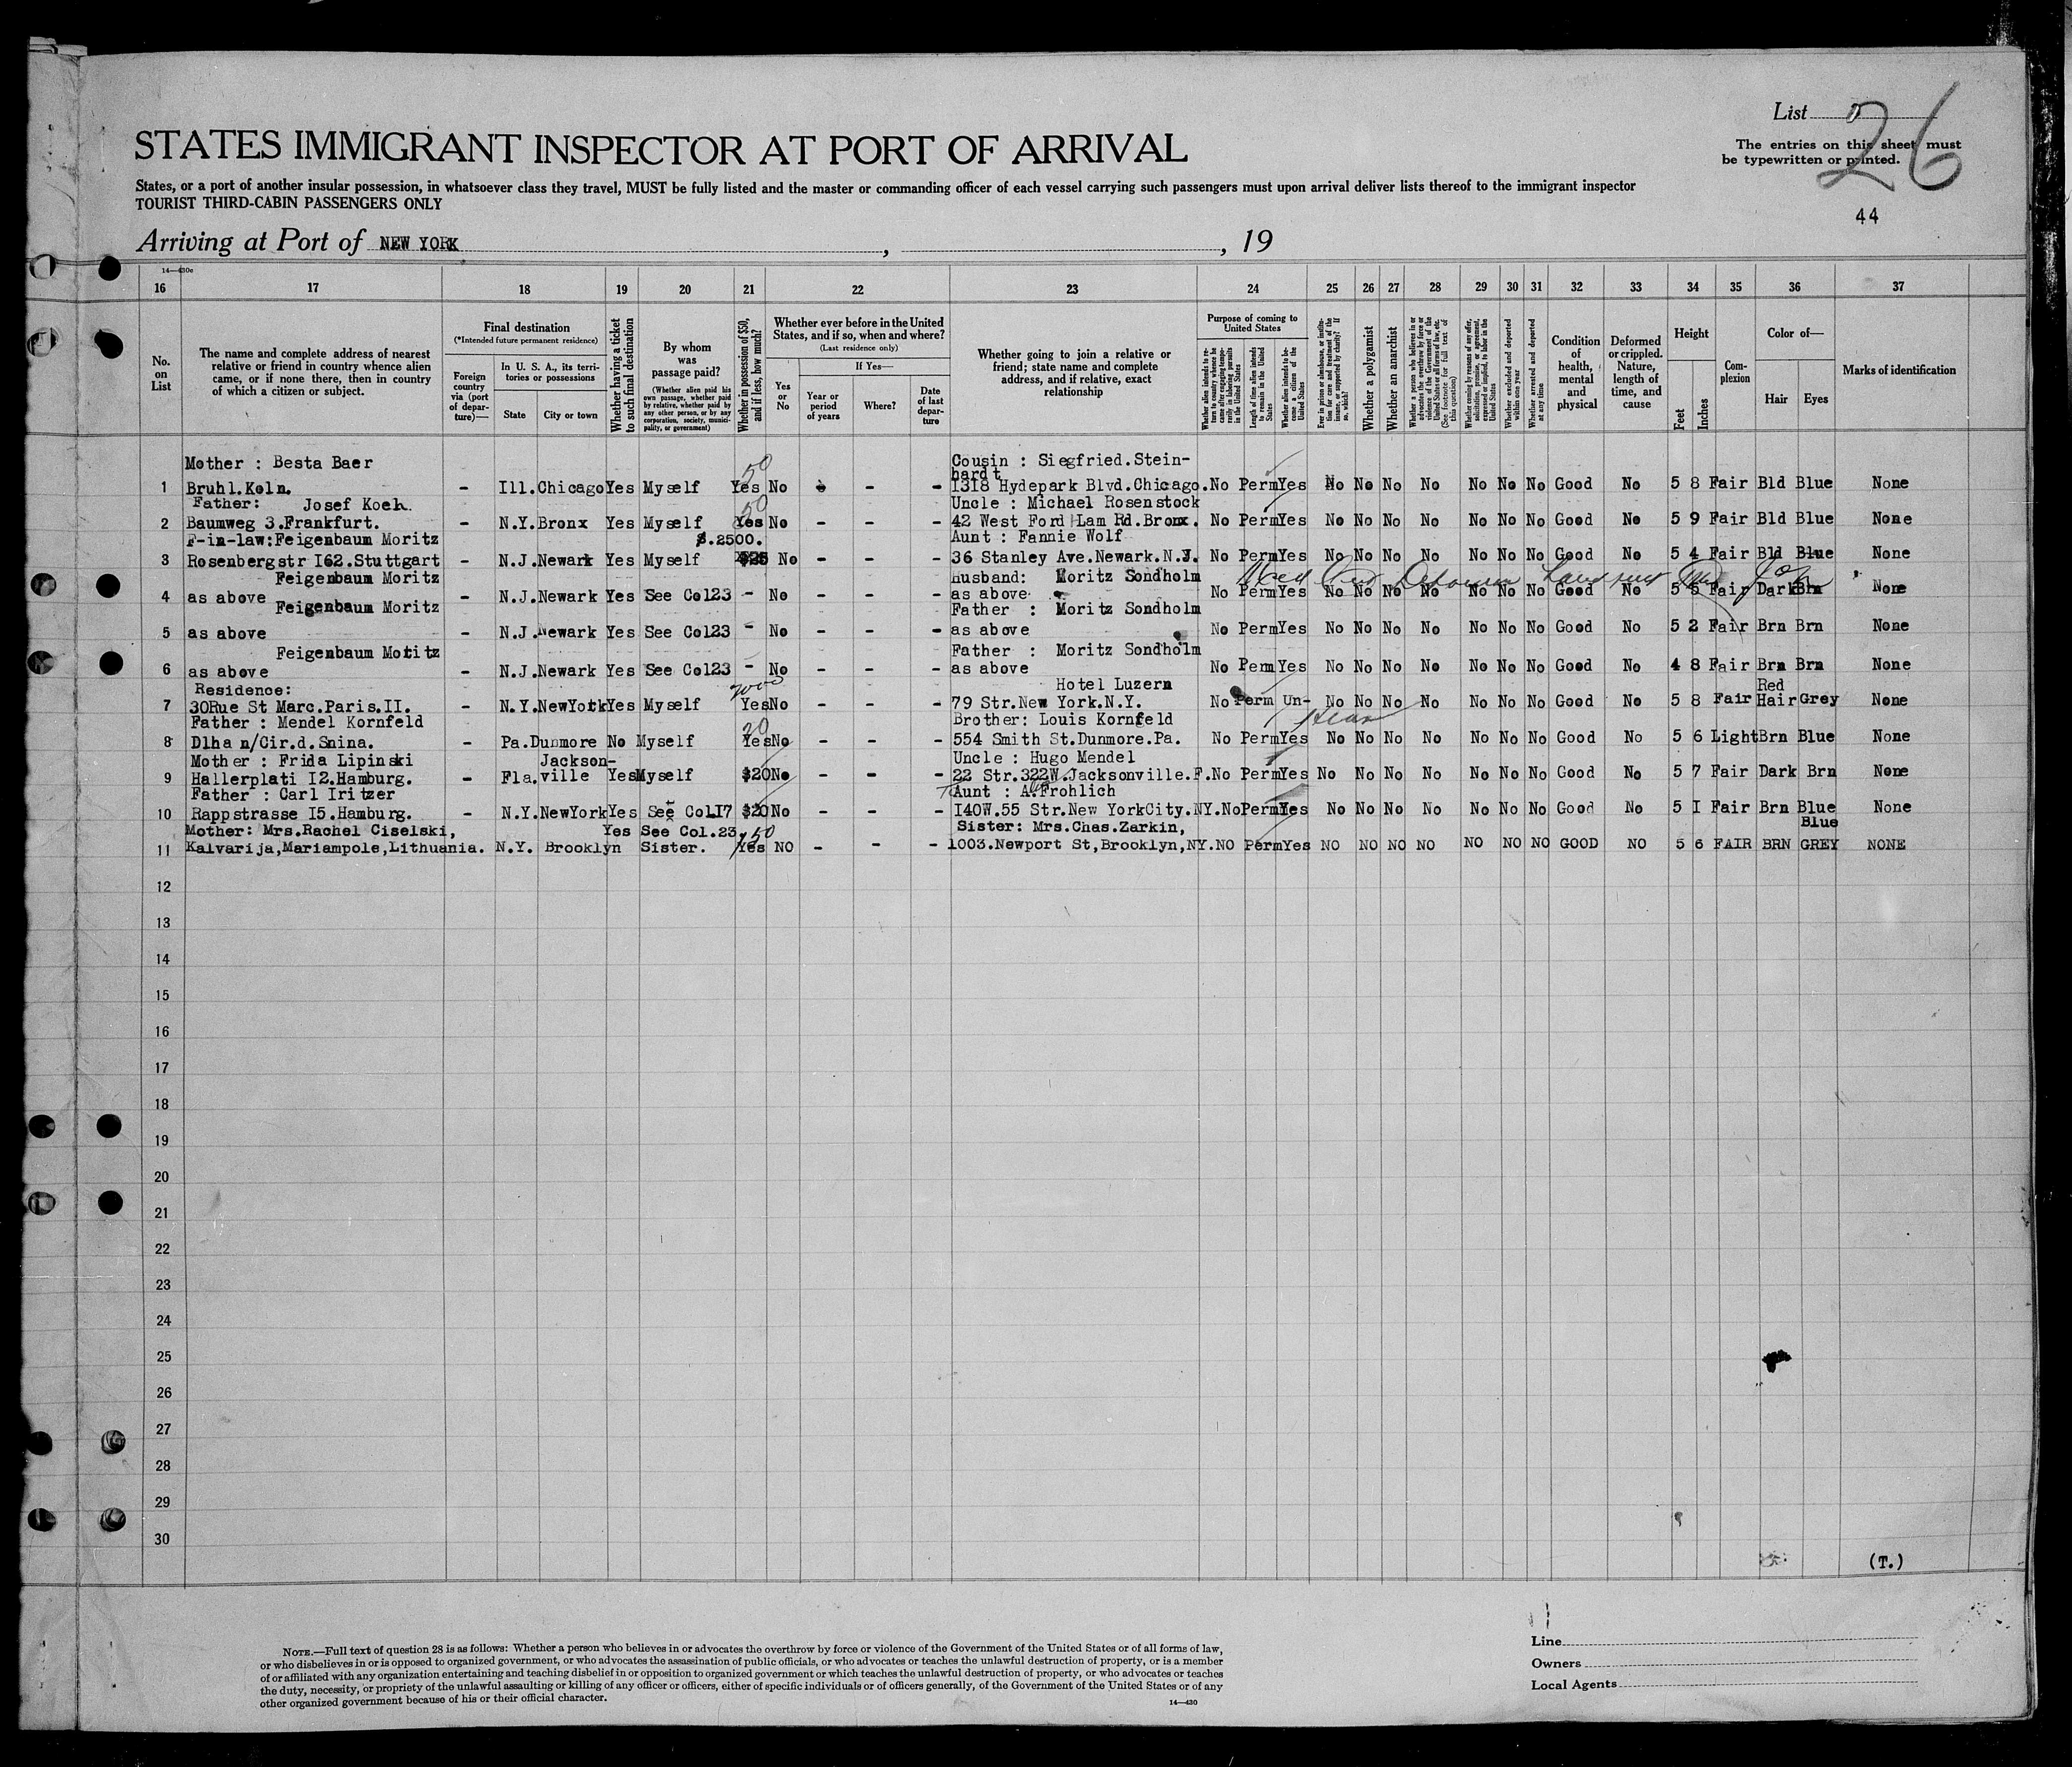 List 26
The entries on this sheet must
be typewritten or printed.
44
STATES IMMIGRANT INSPECTOR AT PORT OF ARRIVAL
States, or a port of another insular possession, in whatsoever class they travel, MUST be fully listed and the master or commanding officer of each vessel carrying such passengers must upon arrival deliver lists thereof to the immigrant inspector
TOURIST THIRD-CABIN PASSENGERS ONLY
Arriving at Port of NEW YORK , , 19
14—430e
16 17 18 19 20 21 22 23 24 25 26 27 28 29 30 31 32 33 34 35 36 37
No. on List
The name and complete address of nearest relative or friend in country whence alien came, or if none there, then in country of which a citizen or subject.
Final destination
(*Intended future permanent residence)
Foreign country via (port of departure)—
In U. S. A., its territories or possessions
State City or town
Whether having a ticket to such final destination
By whom was passage paid?
(Whether alien paid his own passage, whether paid by relative, whether paid by any other person, or by any corporation, society, municipality, or government)
Whether in possession of $50, and if less, how much?
Whether ever before in the United States, and if so, when and where?
(Last residence only)
Yes or No
If Yes—
Year or period of years
Where?
Date of last departure
Whether going to join a relative or friend; state name and complete address, and if relative, exact relationship
Purpose of coming to United States
Whether alien intends to return to country whence he came after engaging temporarily in laboring pursuits in the United States
Length of time alien intends to remain in the United States
Whether alien intends to become a citizen of the United States
Ever in prison or almshouse, or institution for care and treatment of the insane, or supported by charity? If so, which?
Whether a polygamist
Whether an anarchist
Whether a person who believes in or advocates the overthrow by force or violence of the Government of the United States or all forms of law, etc. (See footnote for full text of this question)
Whether coming by reasons of any offer, solicitation, promise, or agreement, expressed or implied, to labor in the United States
Whether excluded and deported within one year
Whether arrested and deported at any time
Condition of health, mental and physical
Deformed or crippled. Nature, length of time, and cause
Height
Feet Inches
Complexion
Color of—
Hair Eyes
Marks of identification
Mother : Besta Baer 50 Cousin : Siegfried.Stein-
hardt
1 Bruhl.Koln. - Ill.Chicago Yes Myself Yes No - - - 1318 Hydepark Blvd.Chicago. No Perm Yes No No No No No No No Good No 5 8 Fair Bld Blue None
Father: Josef Koch. 50 Uncle : Michael Rosenstock
2 Baumweg 3.Frankfurt. - N.Y.Bronx Yes Myself Yes No - - - 42 West Ford Lam Rd.Bronx. No Perm Yes No No No No No No No Good No 5 9 Fair Bld Blue None
F-in-law:Feigenbaum Moritz $.2500. Aunt : Fannie Wolf
3 Rosenbergstr I62.Stuttgart - N.J.Newark Yes Myself $25 No - - - 36 Stanley Ave.Newark.N.J. No Perm Yes No No No No No No No Good No 5 4 Fair Bld Blue None
Feigenbaum Moritz Husband: Moritz Sondholm
4 as above - N.J.Newark Yes See Col23 - No - - - as above No Perm Yes No No No No No No No Good No 5 5 Fair Dark Brn None
Feigenbaum Moritz Father : Moritz Sondholm
5 as above - N.J.Newark Yes See Col23 - No - - - as above No Perm Yes No No No No No No No Good No 5 2 Fair Brn Brn None
Feigenbaum Motitz Father : Moritz Sondholm
6 as above - N.J.Newark Yes See Col23 - No - - - as above No Perm Yes No No No No No No No Good No 4 8 Fair Brn Brn None
Residence: 2000 Hotel Luzern Red
7 30Rue St Marc.Paris.II. - N.Y.NewYork Yes Myself Yes No - - - 79 Str.New York.N.Y. No Perm Un- No No No No No No No Good No 5 8 Fair Hair Grey None
Father : Mendel Kornfeld 20 Brother: Louis Kornfeld
8 Dlha n/Cir.d.Snina. - Pa.Dunmore No Myself Yes No - - - 554 Smith St.Dunmore.Pa. No Perm Yes No No No No No No No Good No 5 6 Light Brn Blue None
Mother : Frida Lipinski Jackson- Uncle : Hugo Mendel
9 Hallerplati I2.Hamburg. - Fla.ville Yes Myself $20 No - - - 22 Str.322W.Jacksonville.F. No Perm Yes No No No No No No No Good No 5 7 Fair Dark Brn None
Father : Carl Iritzer Aunt : A.Frohlich
10 Rappstrasse I5.Hamburg. - N.Y.NewYork Yes See Col.I7 $20 No - - - I40W.55 Str.New YorkCity.NY. No Perm Yes No No No No No No No Good No 5 I Fair Brn Blue None
Mother: Mrs.Rachel Ciselski, Yes See Col.23. 50 Sister: Mrs.Chas.Zarkin, Blue
11 Kalvarija,Mariampole,Lithuania. N.Y. Brooklyn Sister. Yes NO - - - 1003.Newport St,Brooklyn,NY. NO Perm Yes NO NO NO NO NO NO NO GOOD NO 5 6 FAIR BRN GREY NONE
12
13
14
15
16
17
18
19
20
21
22
23
24
25
26
27
28
29
30
(T.)
NOTE.—Full text of question 28 is as follows: Whether a person who believes in or advocates the overthrow by force or violence of the Government of the United States or of all forms of law,
or who disbelieves in or is opposed to organized government, or who advocates the assassination of public officials, or who advocates or teaches the unlawful destruction of property, or is a member
of or affiliated with any organization entertaining and teaching disbelief in or opposition to organized government or which teaches the unlawful destruction of property, or who advocates or teaches
the duty, necessity, or propriety of the unlawful assaulting or killing of any officer or officers, either of specific individuals or of officers generally, of the Government of the United States or of any
other organized government because of his or their official character.
14—430
Line
Owners
Local Agents